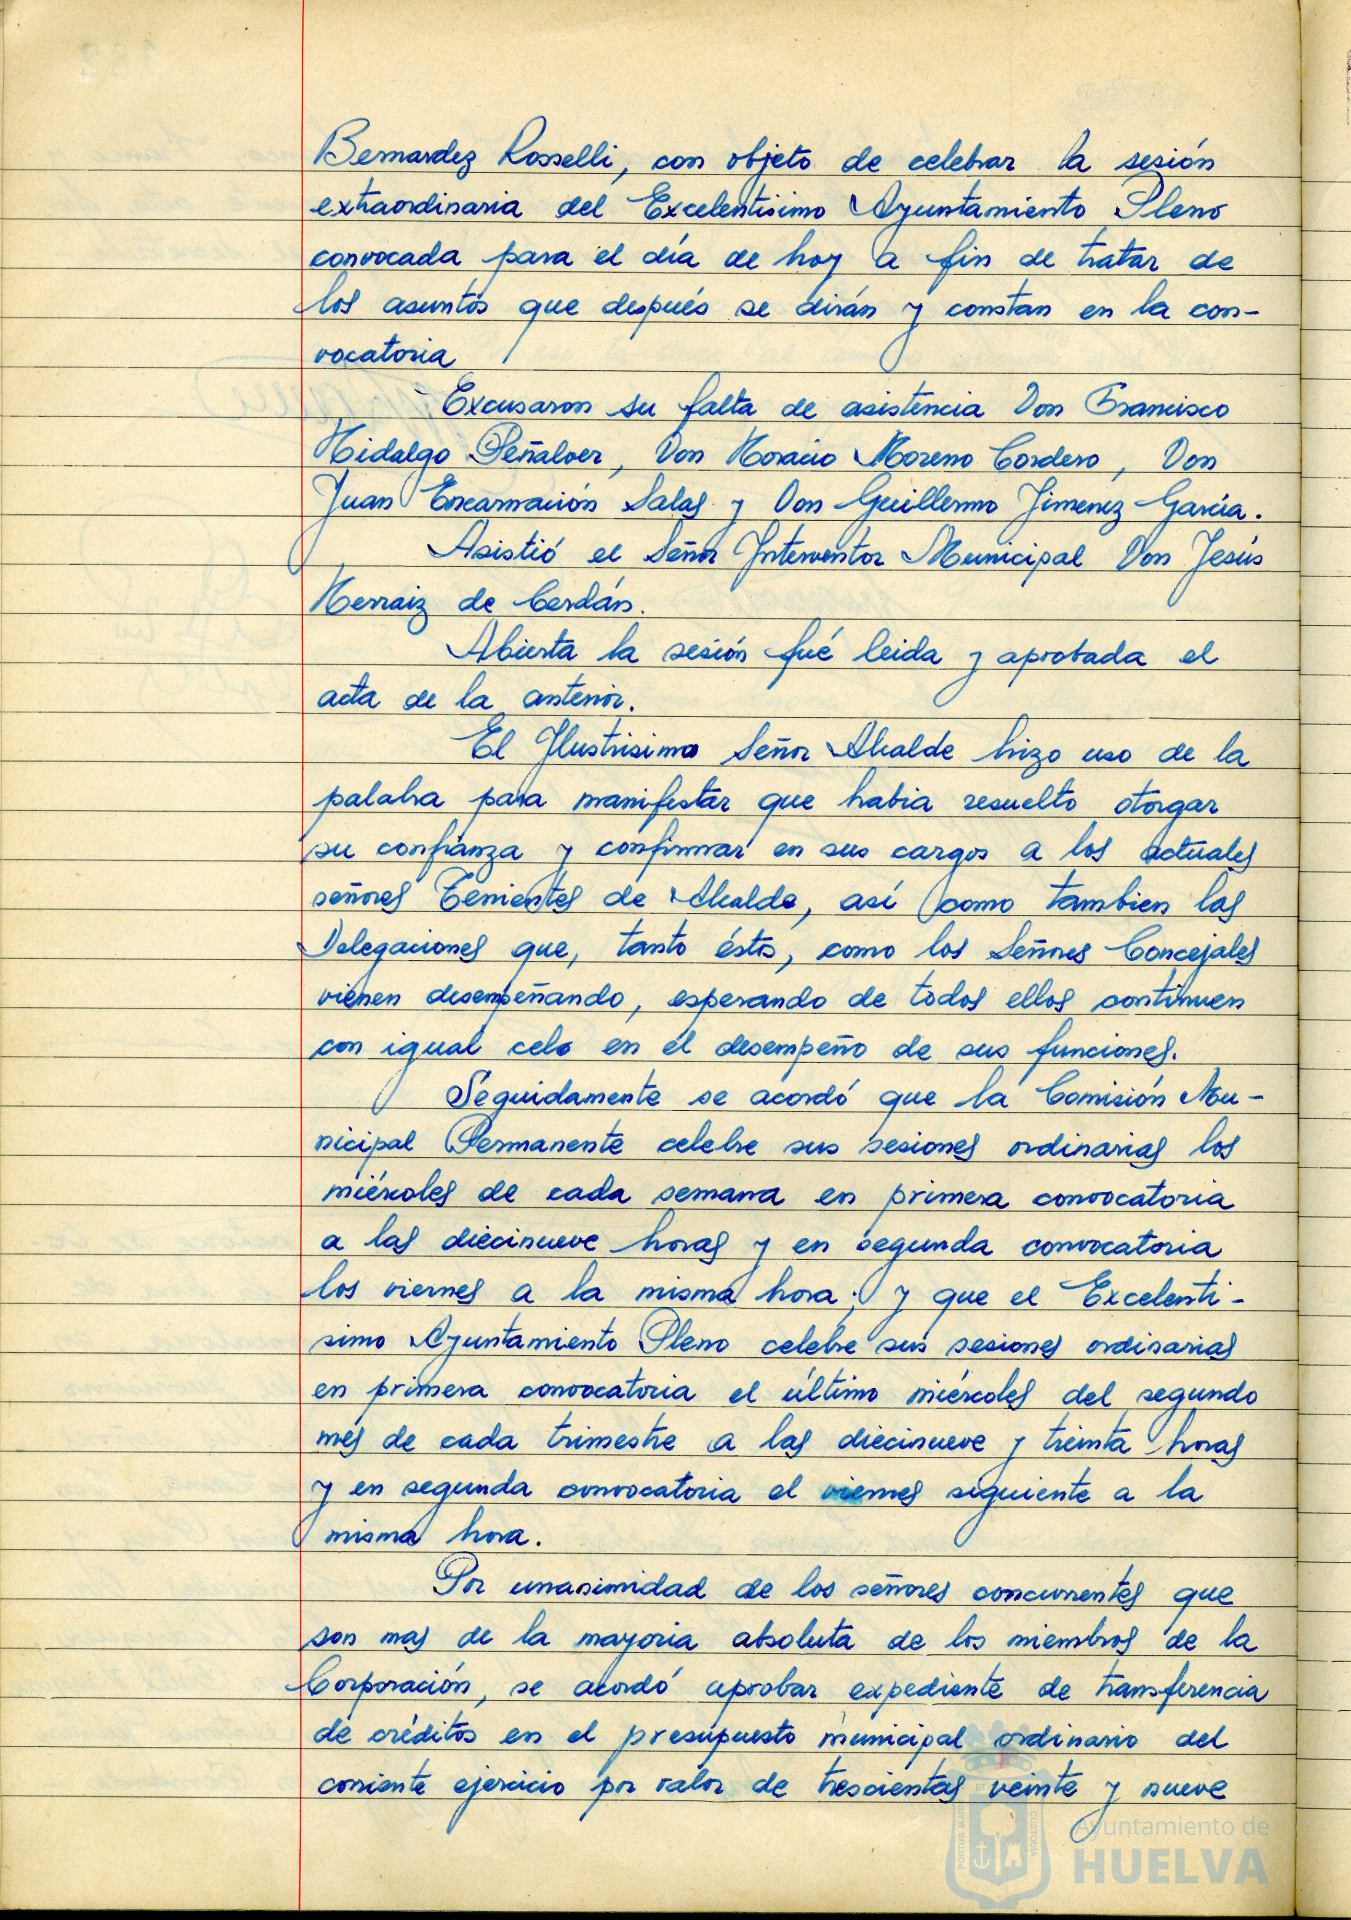 Bernardez Rosselli, con objeto de celebrar la sesión
extraordinaria del Excelentísimo Ayuntamiento Pleno
convocada para el día de hoy a fin de tratar de
los asuntos que después se dirán y constan en la con-
vocatoria
Excusaron su falta de asistencia Don Francisco
Hidalgo Peñalver, Don Horacio Moreno Cordero, Don
Juan Encarnación Salas y Don Guillermo Jimenez García.
Asistió el Señor Interventor Municipal Don Jesús
Herraiz de Cerdán.
Abierta la sesión fué leida y aprobada el
acta de la anterior.
El Ilustrisimo Señor Alcalde hizo uso de la
palabra para manifestar que habia resuelto otorgar
su confianza y confirmar en sus cargos a los actuales
señores Tenientes de Alcalde, así como tambien las
Delegaciones que, tanto éstos, como los Señores Concejales
vienen desempeñando, esperando de todos ellos continuen
con igual celo en el desempeño de sus funciones.
Seguidamente se acordó que la Comisión Mu-
nicipal Permanente celebre sus sesiones ordinarias los
miércoles de cada semana en primera convocatoria
a las diecinueve horas y en segunda convocatoria
los viernes a la misma hora; y que el Excelenti-
simo Ayuntamiento Pleno celebre sus sesiones ordinarias
en primera convocatoria el último miércoles del segundo
mes de cada trimestre a las diecinueve y treinta horas
y en segunda convocatoria el viernes siguiente a la
misma hora.
Por unanimidad de los señores concurrentes que
son mas de la mayoria absoluta de los miembros de la
Corporación, se acordó aprobar expediente de transferencia
de créditos en el presupuesto municipal ordinario del
corriente ejercicio por valor de trescientas veinte y nueve
Ayuntamiento de
HUELVA